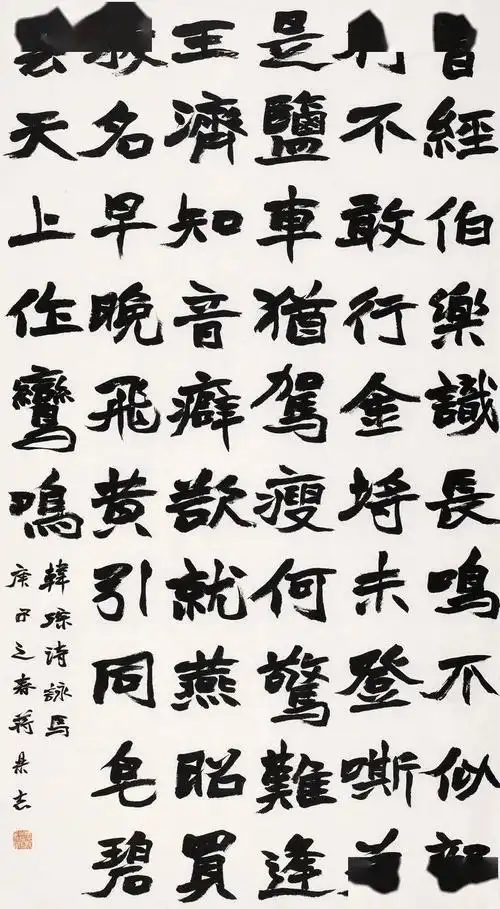 經伯樂識長鳴不似
不敢行金埒未登嘶
是鹽車猶駕瘦何驚難逢
王濟知音癖欲就燕昭買
名早晚飛黃引同皂碧
天上作鸞鳴
韓琮詩詠馬
庚子之春蔣志